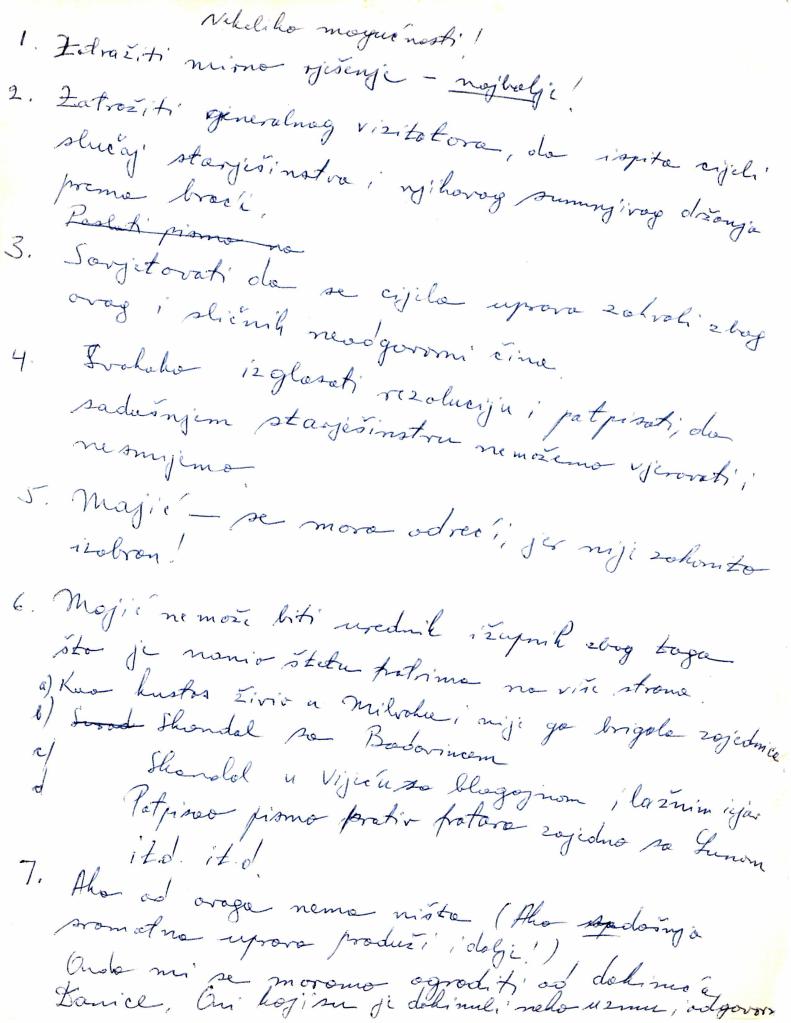 Nekoliko mogućnosti!
1. Zatražiti mirno rješenje – najbolje!
2. Zatražiti generalnog vizitatora, da ispita cijeli
slučaj starješinstva i njihovog sumnjivog držanja
prema braći.
Poslati pismo na
3. Savjetovati da se cijela uprava zahvali zbog
ovog i sličnih neodgovorni čina.
4. Svakako izglasati rezoluciju i potpisati, da
sadašnjem starješinstvu nemožemo vjerovati i
nesmijemo.
5. Majić – se mora odreći, jer nije zakonito
izabran!
6. Majić nemože biti urednik i župnik zbog toga
što je nanio štetu fratrima na više strana.
a) Kao kustos živio u Milvoku i nije ga brigala zajednica
b) Skandal sa Badovincem
c) Skandal u Vijeću sa blagajnom i lažnim izjav
d Potpisao pismo protiv fratara zajedno sa
it.d. it.d.
7. Ako od ovoga nema ništa (Ako sadašnja
sramotna uprava produži i dalje!)
Onda mi se moramo ograditi od dokinuća
Danice. Oni koji su je dokinuli neka uzmu i odgovorn